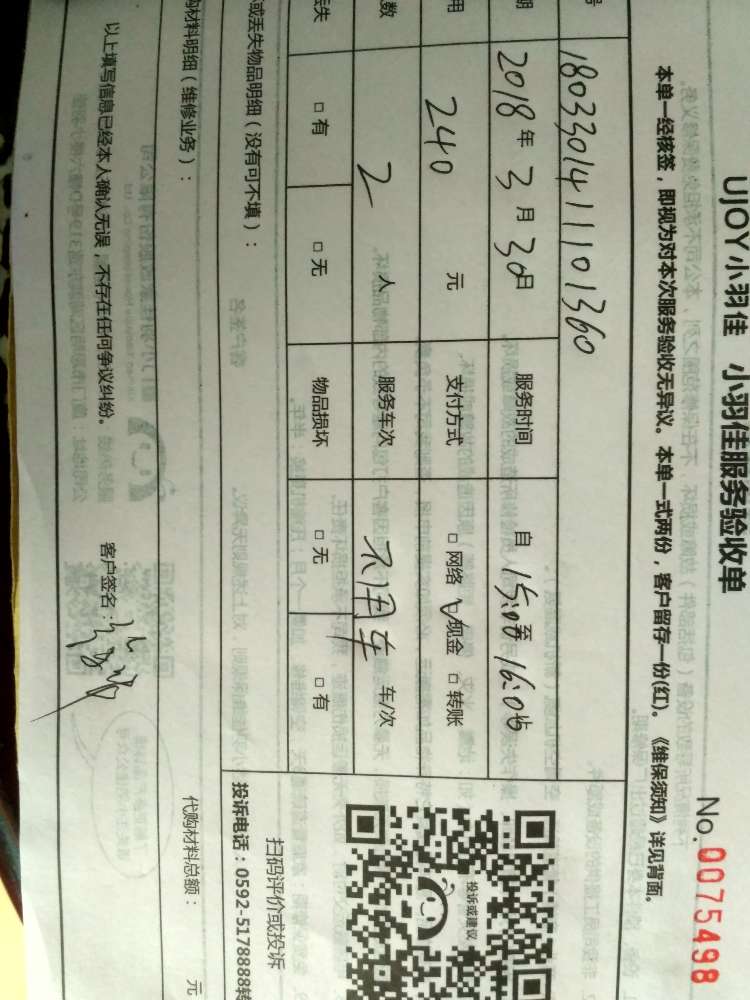 UJOY小羽佳 小羽佳服务验收单
No. 0075498
本单一经核签，即视为对本次服务验收无异议。本单一式两份，客户留存一份(红)。《维保须知》详见背面。
号 1803301411101360
期 2018年3月30日 服务时间 自15:00至16:00
用 240元 支付方式 □网络 ☑现金 □转账
数 2人 服务车次 不用车 车/次
丢失 □有 □无 物品损坏 □无 □有
或丢失物品明细（没有可不填）：
购材料明细（维修业务）：
代购材料总额： 元
以上填写信息已经本人确认无误，不存在任何争议纠纷。 客户签名：
投诉或建议
扫码评价或投诉
投诉电话：0592-5178888转